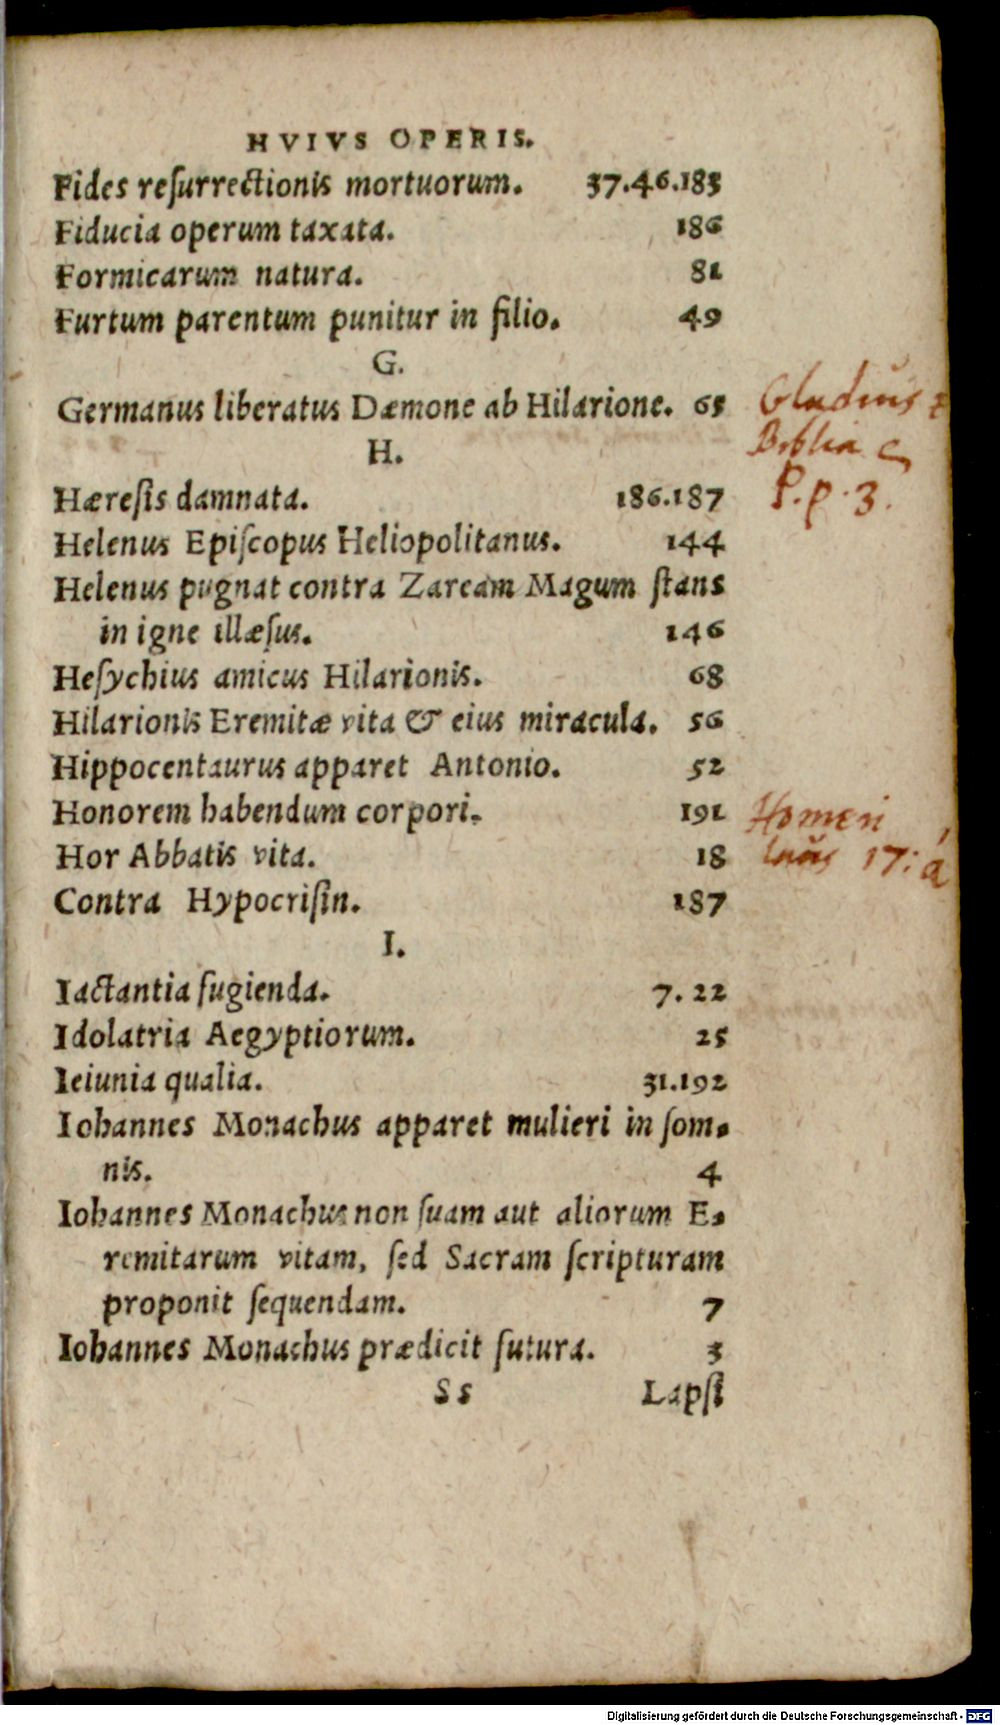 HVIVS OPERIS.
Fides reſurrectionis mortuorum. 37.46.183
Fiducia operum taxata. 186
Formicarum natura. 81
Furtum parentum punitur in filio. 49
G.
Germanus liberatus Dæmone ab Hilarione. 65
Gladius
Biblia
P. p. 3.
H.
Hæreſis damnata. 186.187
Helenus Epiſcopus Heliopolitanus. 144
Helenus pugnat contra Zaream Magum ſtans
in igne illæſus. 146
Heſychius amicus Hilarionis. 68
Hilarionis Eremitæ vita & eius miracula. 56
Hippocentaurus apparet Antonio. 52
Honorem habendum corpori. 191
Homeri
17: a
Hor Abbatis vita. 18
Contra Hypocriſin. 187
I.
Iactantia fugienda. 7. 22
Idolatria Aegyptiorum. 25
Ieiunia qualia. 31.192
Iohannes Monachus apparet mulieri in ſom-
nis. 4
Iohannes Monachus non ſuam aut aliorum E-
remitarum vitam, ſed Sacram ſcripturam
proponit ſequendam. 7
Iohannes Monachus prædicit futura. 3
S s Lapſi
Digitalisierung gefördert durch die Deutsche Forschungsgemeinschaft - DFG